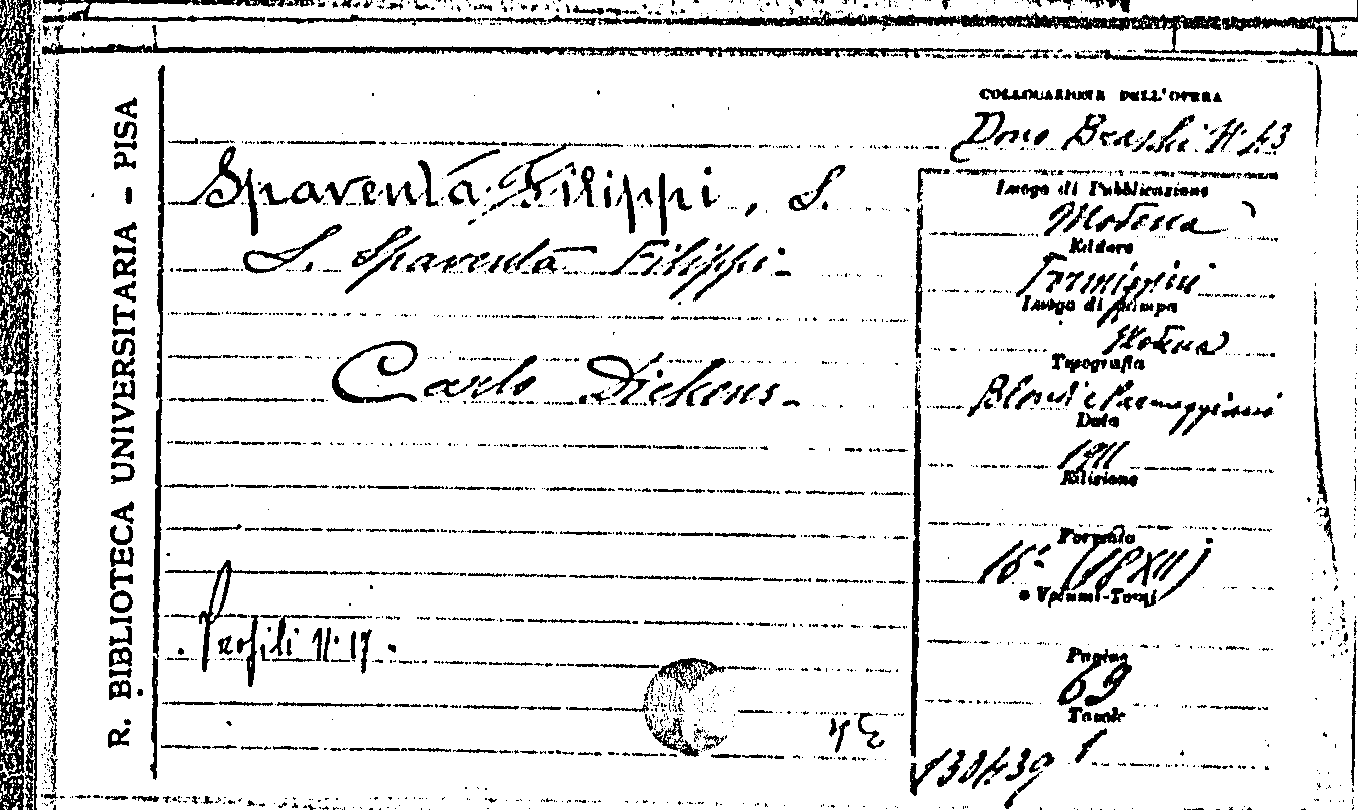 R. BIBLIOTECA UNIVERSITARIA - PISA
Spaventa Filippi, S.
S. Spaventa Filippi.
Carlo Dickens.
Profili N. 17.
COLLOCAZIONE DELL'OPERA
Dono N. 43
Luogo di Pubblicazione
Modena
Editore
Formiggini
Luogo di Stampa
Modena
Tipografia
Blondi e Parmeggiani
Data
1911
Edizione
Formato
16°
e Volumi-Tomi
Pagine
69
Tavole
1